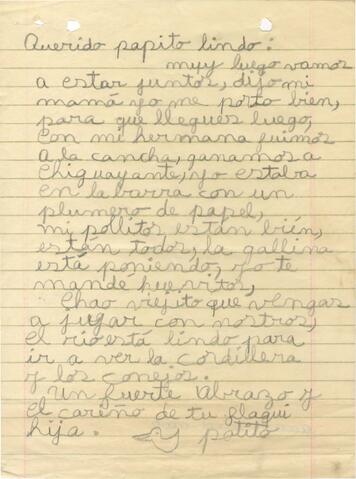 Querido papito lindo:
muy luego vamos
a estar juntos, dijo mi
mamá yo me porto bien,
para que llegues luego,
con mi hermana fuimos
a la cancha, ganamos a
Chiguayante, yo estaba
en la barra con un
plumero de papel,
mi pollitos están bien,
están todos, la gallina
está poniendo, yo te
mande huevitos,
Chao viejito que vengas
a jugar con nostros,
el rio está lindo para
ir a ver la cordillera
y los conejos.
Un fuerte Abrazo y
el cariño de tu flaqui
hija. y patito